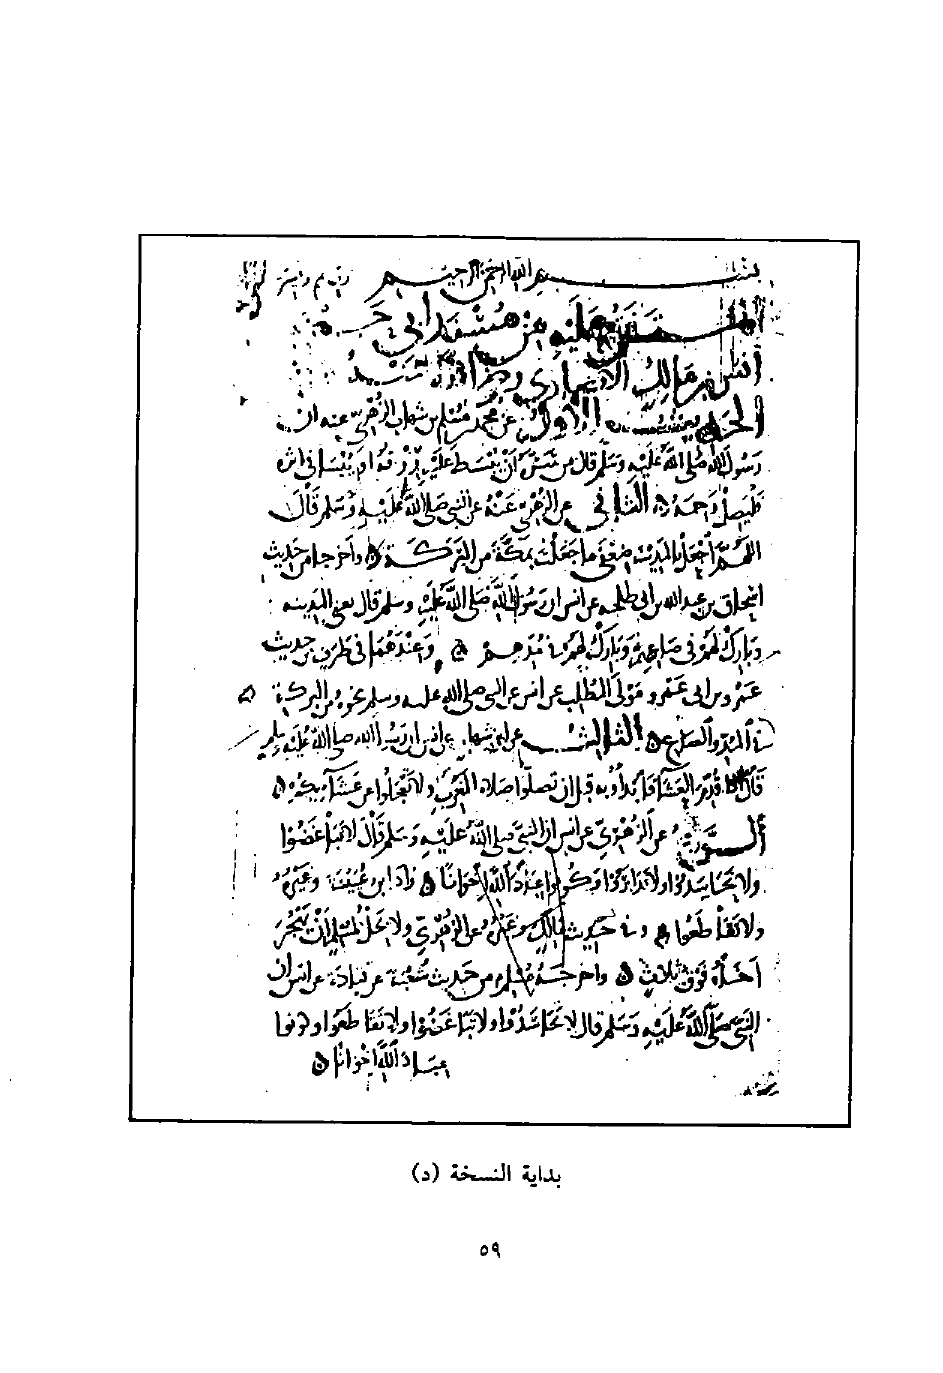 بسم الله الرحمن الرحيم
المتفق عليه من مسند أبي حمزة
أنس بن مالك الانصاري
الحديث الاول عن محمد بن مسلم بن شهاب الزهري عنه ان
رسول الله صلى الله عليه وسلم قال من سره أن يبسط عليه رزقه او ينسأ في اثره
فليصل رحمه الثاني عن الزهري عنه عن النبي صلى الله عليه وسلم قال
اللهم اجعل بالمدينة ضعفي ما جعلت بمكة من البركة واخرجا من حديث
اسحاق بن عبد الله بن ابي طلحه عن انس ان رسول الله صلى الله عليه وسلم قال يعني المدينه
وبارك لهم في صاعهم وبارك لهم في مدهم وعندهما في طرف من حديث
عمرو بن ابي عمرو مولى المطلب عن انس عن النبي صلى الله عليه وسلم نحوه من البركة
في المد والصاع الثالث عن ابن شهاب عن انس ان رسول الله صلى الله عليه وسلم
قال اذا قدم العشا فابدأوا به قبل ان تصلوا صلاة المغرب ولا تعجلوا عن عشائكم
عن الزهري عن انس ان النبي صلى الله عليه وسلم قال لا تباغضوا
ولا تحاسدوا ولا تدابروا وكونوا عباد الله اخوانا زاد ابن عيينة وغيره
ولا تقاطعوا وفي حديث مالك وغيره عن الزهري ولا يحل لمسلم أن يهجر
أخاه فوق ثلاث واخرجه مسلم من حديث شعبة عن قتادة عن انس ان
النبي صلى الله عليه وسلم قال لا تحاسدوا ولا تباغضوا ولا تقاطعوا وكونوا
عباد الله اخوانا
بداية النسخة (د)
٥٩